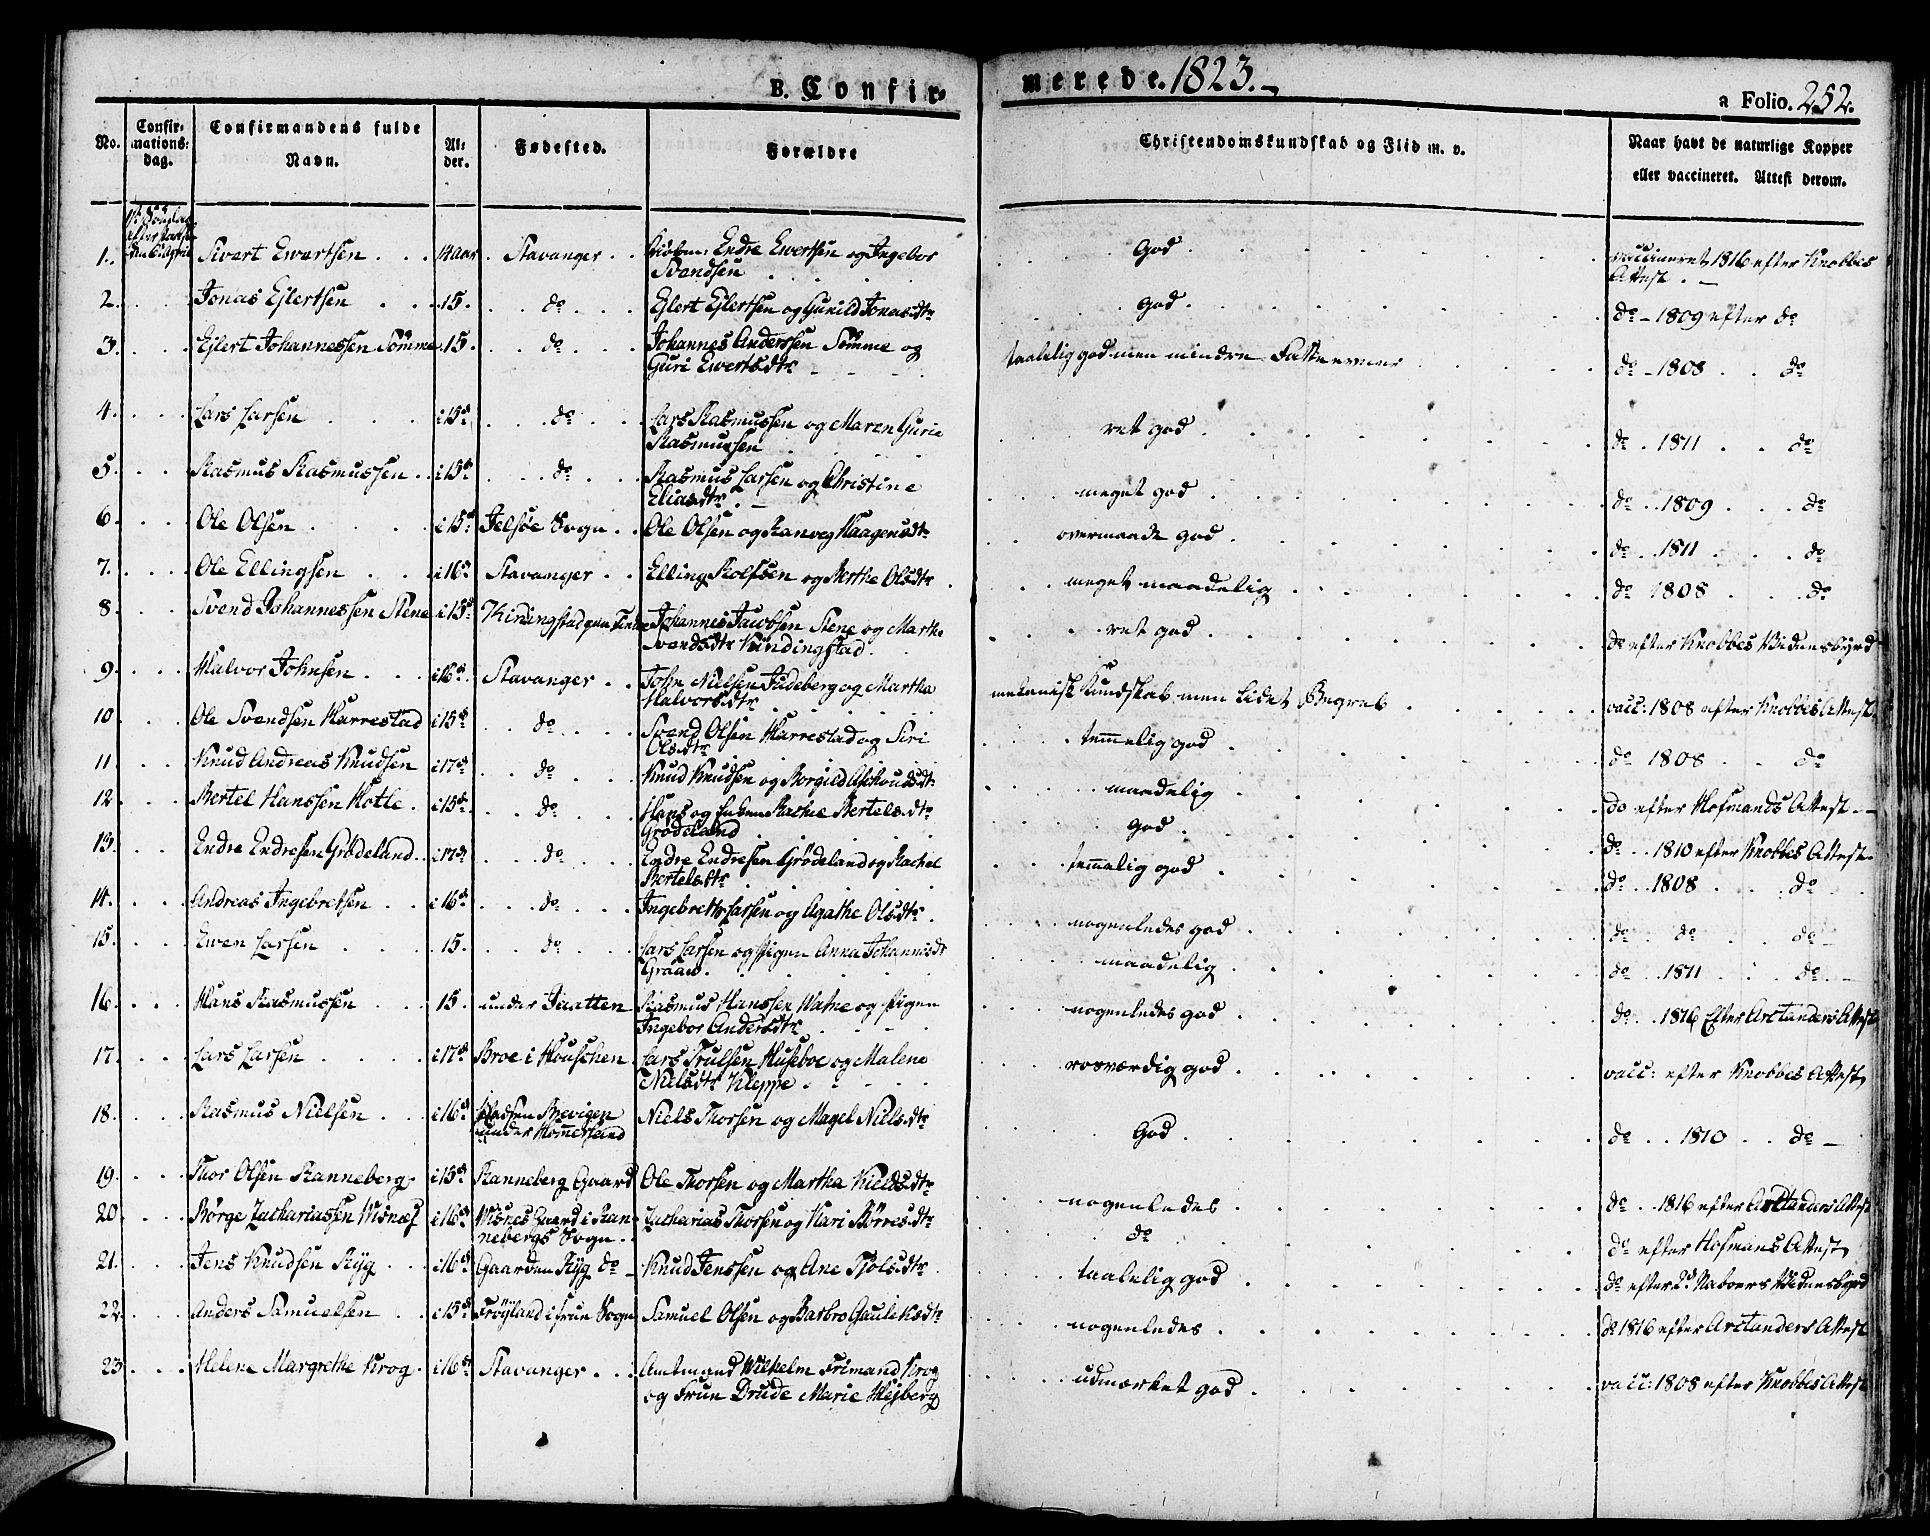 B. Confir-
merede. 1823.-
a Folio. 252.
No. Confir-mations-dag. Confirmandens fulde Navn. Al-der. Fødested. Forældre Christendomskundskab og Flid m. v. Naar havt de naturlige Kopper eller vaccineret. Attest derom.
1. Sivert Ewertsen 14 aar Stavanger Endre Ewertsen og Ingebor God vaccineret 1816 efter Knobbes
Svendsen Attest
2. Jonas Ejlertsen 15 do Ejlert Ejlertsen og Gunild Jonasdtr God do - 1809 efter do
3. Ejlert Johannessen Sømme 15 do Johannes Anderssen Sømme og taalelig god men mindre Fatteevner do - 1808 do
Guri Ewertsdtr
4. Lars Larsen i 15d do Lars Rasmussen og Maren Gurie ret god do 1811 do
Rasmussen
5. Rasmus Rasmussen i 15d do Rasmus Larsen og Christine meget god do 1809 do
Eliasdtr
6. Ole Olsen i 15d Jelsøe Sogn Ole Olsen og Ranveg Haagensdtr overmaade god do 1811 do
7. Ole Ellingsen i 16d Stavanger Elling Rolfsen og Berthe Olsdtr meget maadelig do 1808 do
8. Svend Johannessen Stene i 15d Johannes Jacobsen Stene og Marthe ret god do efter Knobbes Vidnesbyrd
Svendsdtr Kindingstad
9. Halvor Johnsen i 16d Stavanger John Nielsen Judeberg og Martha mekanisk Kundskab men lidet Begreb vacc: 1808 efter Knobbes Attest
Halvorsdtr
10 Ole Svendsen Harrestad i 15d do Svend Olsen Harrestad og Siri temmelig god do 1808 do
Olsdtr
11. Knud Andreas Knudsen i 17d do Knud Knudsen og Borgild Aslaksdtr maadelig do efter Hofmands Attest
12. Bertel Hanssen Hotle i 15d do Hans og Rachel Bertelsdtr God do 1810 efter Knobbes Attest
Grødeland
13. Endre Endresen Grødeland i 17d do Endre Endresen Grødeland og Rachel temmelig god do 1808 do
Bertelsdtr
14. Andreas Ingebretsen i 16d do Ingebret Larsen og Agathe Olsdtr nogenledes god do do do
15. Ewen Larsen 15. do Lars Larsen og Pigen Anna Johannisdt maadelig do 1811 do
Graae
16. Hans Rasmussen 15. under Jaatten Rasmus Hanssen Watne og Pigen nogenledes god do 1816 Efter Arctanders Attest
Ingebor Andersdtr
17. Lars Larsen i 17d Broe i Houschen Lars Truelsen Huseboe og Malene rosværdig god vacc: efter Knobbes Attest
Nielsdtr Kleppe
18. Rasmus Nielsen i 16d Pladsen Brevigen Niels Thorsen og Magel Nielsdtr God do 1810 do
under Hommersand
19. Thor Olsen Ranneberg i 15d Ranneberg Gaard Ole Thorsen og Martha Kieldsdtr nogenledes do 1816 efter Arctanders Attest
20. Børge Zachariassen Wisnæs i 16d Wisnes Gaard i Ran- Zacharias Thorsen og Kari Børresdtr do do efter Hofmans Attest
nebergs Sogn
21. Jens Knudsen Ryg i 16d Gaarden Ryg do Knud Jenssen og Ane Siolsdtr taalelig god do efter Naboers Vidnesbyrd
22. Anders Samuelsen i 15d Frøyland i Frue Sogn Samuel Olsen og Barbro Gauliksdtr nogenledes do 1816 efter Arctanders Attest
23 Helene Margrethe Krog i 16d Stavanger Amtmand Wilhelm Frimand Krog udmærket god vacc: 1808 efter Knobbes Attest
og Fruen Drude Marie Hejberg